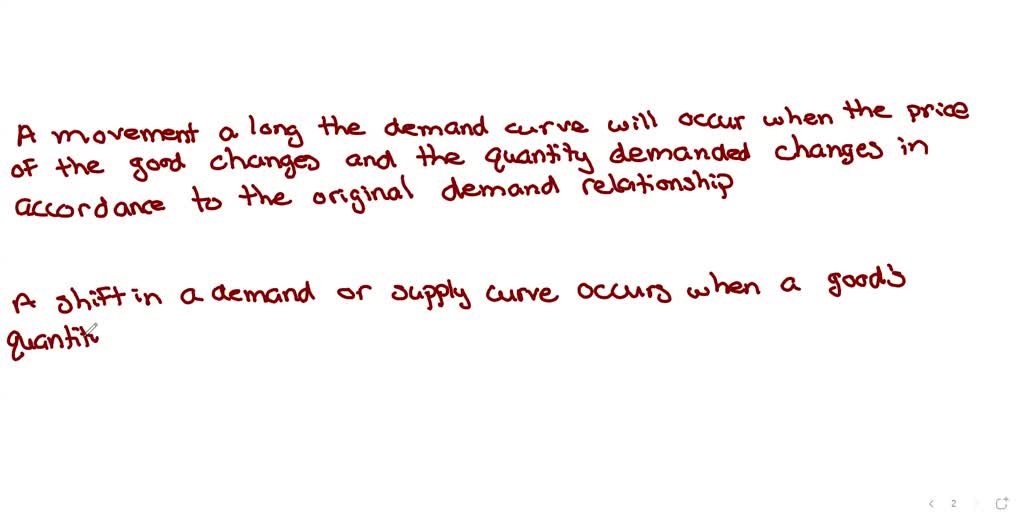 A movement a long the demand curve will occur when the price
of the good changes and the quantity demanded changes in
accordance to the original demand relationship
A shift in a demand or supply curve occurs when a good's
quantiti
2